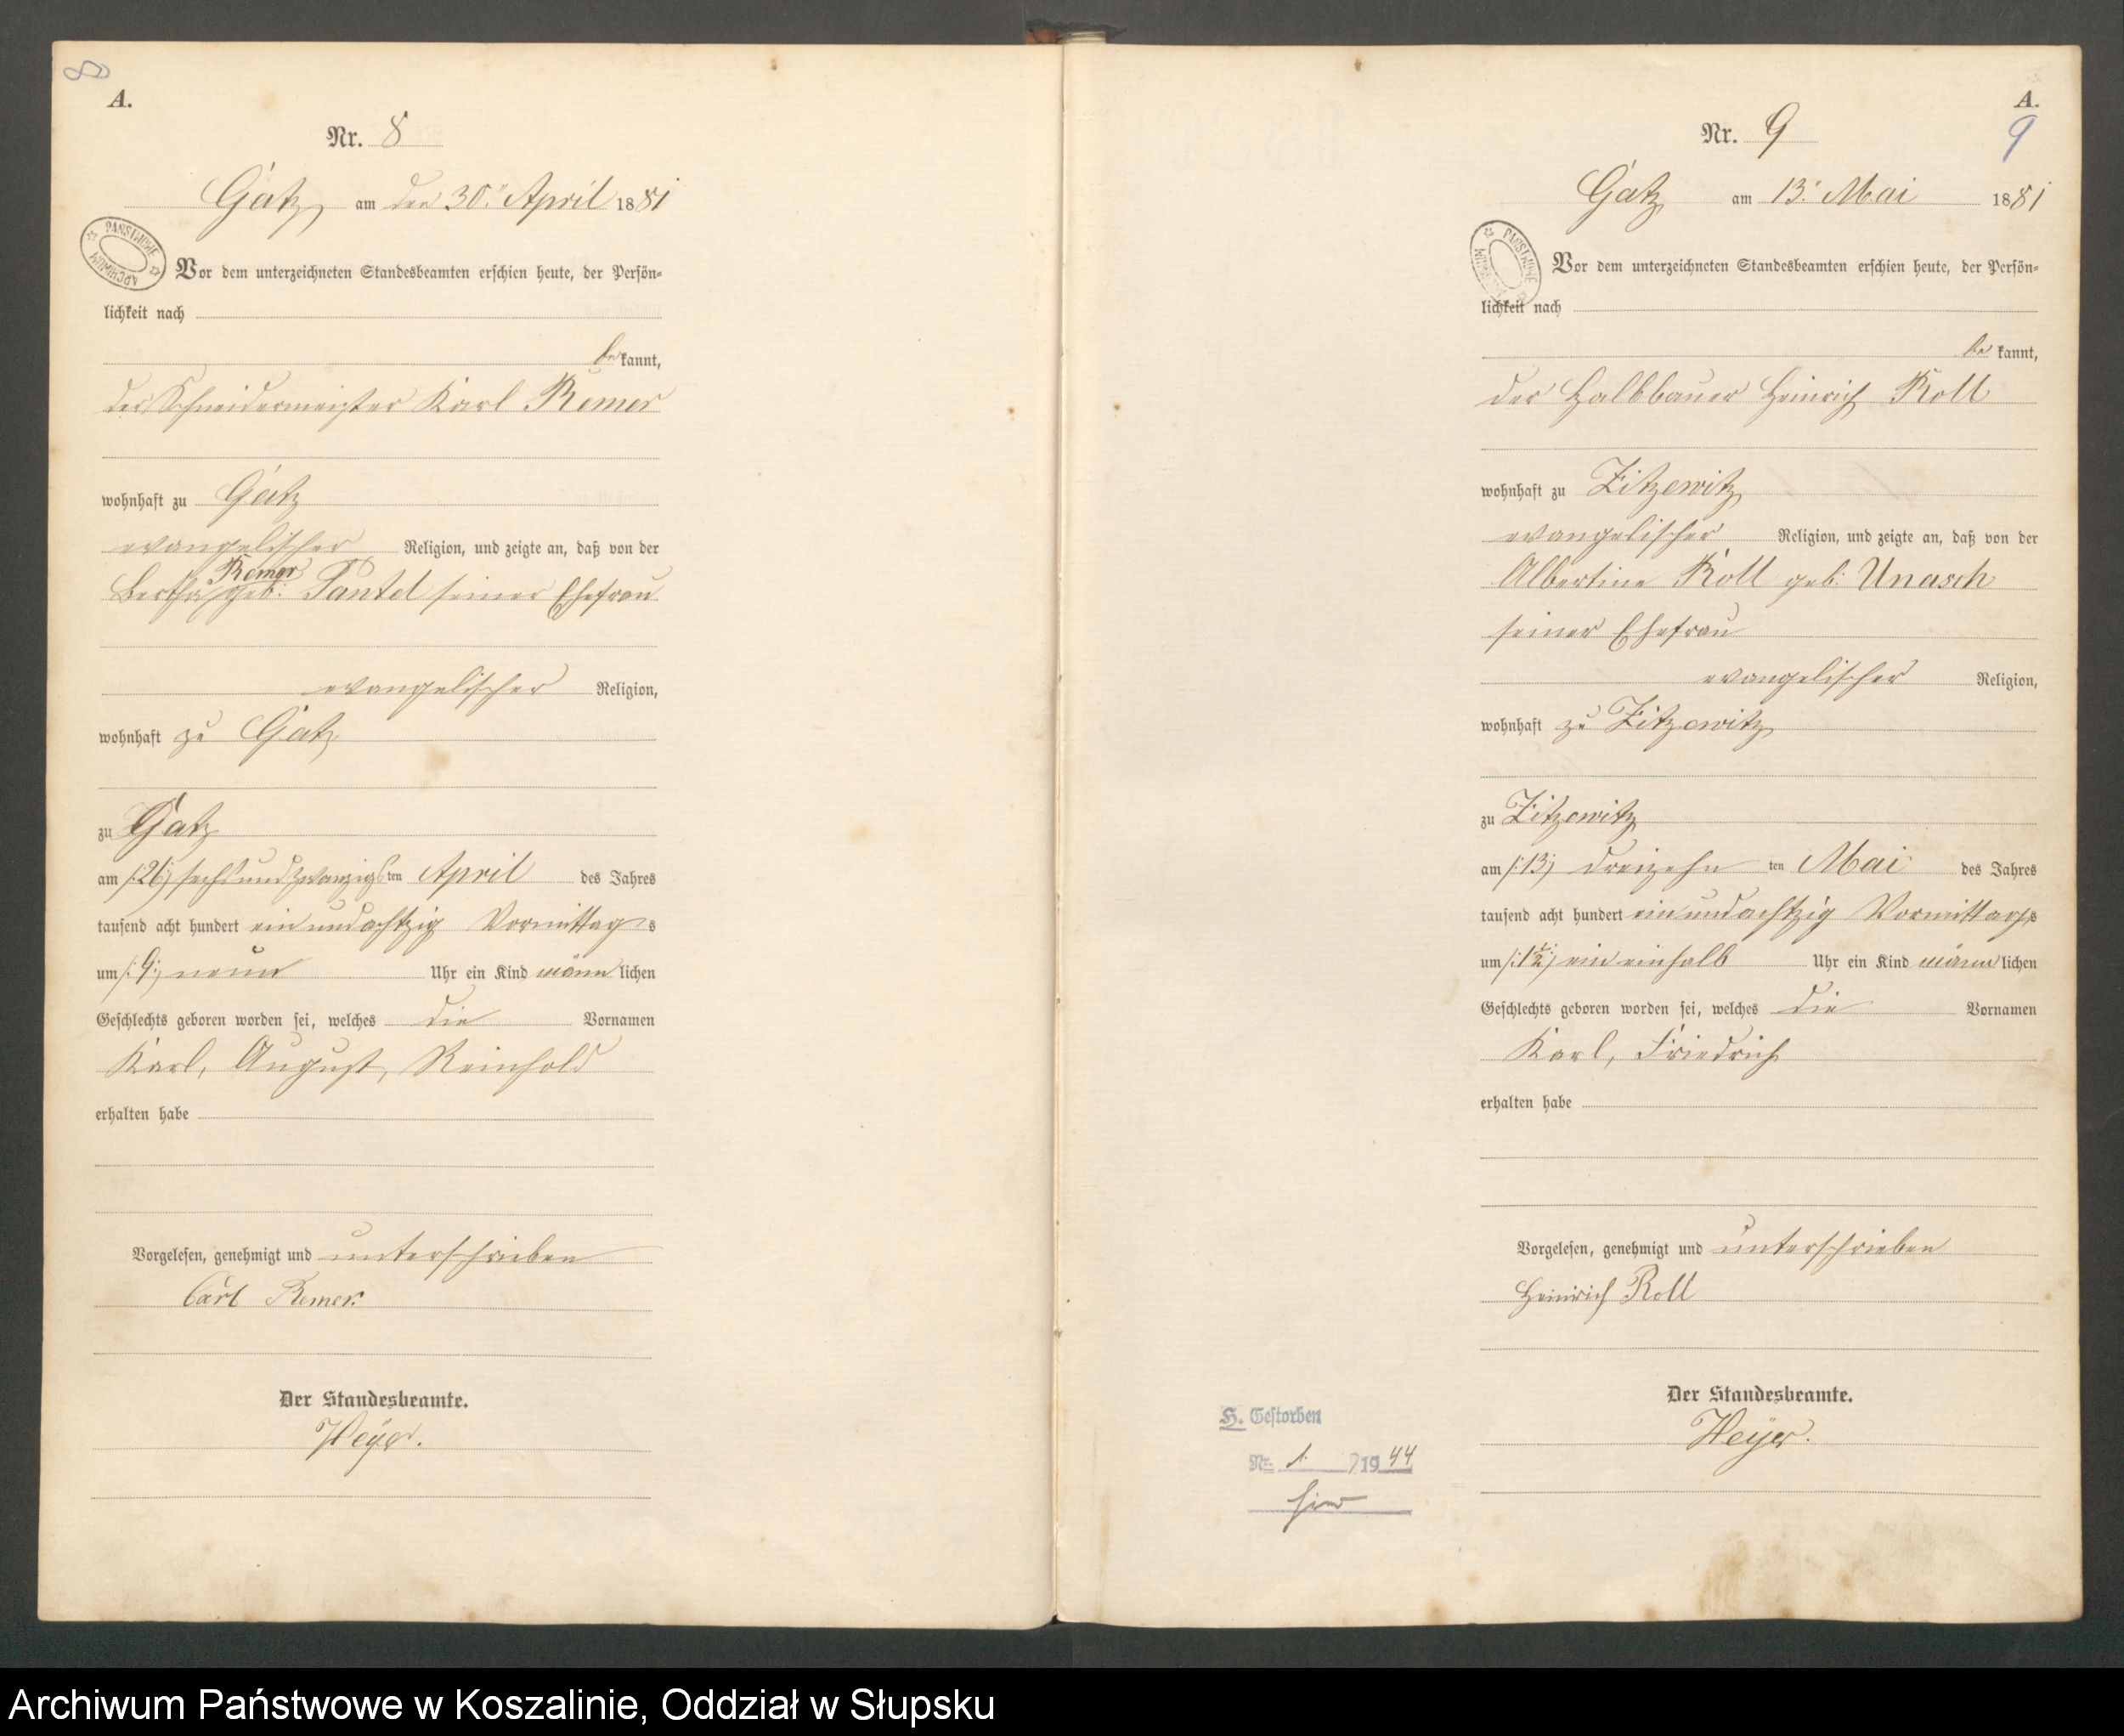 8
A.
Nr. 8
Gatz, am den 30. April 1881
ARCHIWUM PAŃSTWOWE
Vor dem unterzeichneten Standesbeamten erschien heute, der Persön-
lichkeit nach
be kannt,
der Schneidermeister Karl Remer
wohnhaft zu Gatz
evangelischer Religion, und zeigte an, daß von der
Remer
Bertha geb. Pantel seiner Ehefrau
evangelischer Religion,
wohnhaft zu Gatz
zu Gatz
am /:26:/ sechsundzwanzigsten April des Jahres
tausend acht hundert ein und achtzig Vormittags
um /:9:/ neun Uhr ein Kind männlichen
Geschlechts geboren worden sei, welches die Vornamen
Karl, August, Reinhold
erhalten habe
Vorgelesen, genehmigt und unterschrieben
Carl Remer.
Der Standesbeamte.
Heyer.
A.
9
Nr. 9
Gatz am 13. Mai 1881
PAŃSTWOWE
Vor dem unterzeichneten Standesbeamten erschien heute, der Persön-
lichkeit nach
be kannt,
der Halbbauer Heinrich Roll
wohnhaft zu Zitzewitz
evangelischer Religion, und zeigte an, daß von der
Albertine Roll geb. Unasch
seiner Ehefrau
evangelischer Religion,
wohnhaft zu Zitzewitz
zu Zitzewitz
am /:13:/ dreizehn ten Mai des Jahres
tausend acht hundert ein und achtzig Vormittags
um /:1½:/ ein einhalb Uhr ein Kind männlichen
Geschlechts geboren worden sei, welches die Vornamen
Karl, Friedrich
erhalten habe
Vorgelesen, genehmigt und unterschrieben
Heinrich Roll
Der Standesbeamte.
Heyer.
H. Gestorben
Nr. 1. 1944
hier
Archiwum Państwowe w Koszalinie, Oddział w Słupsku